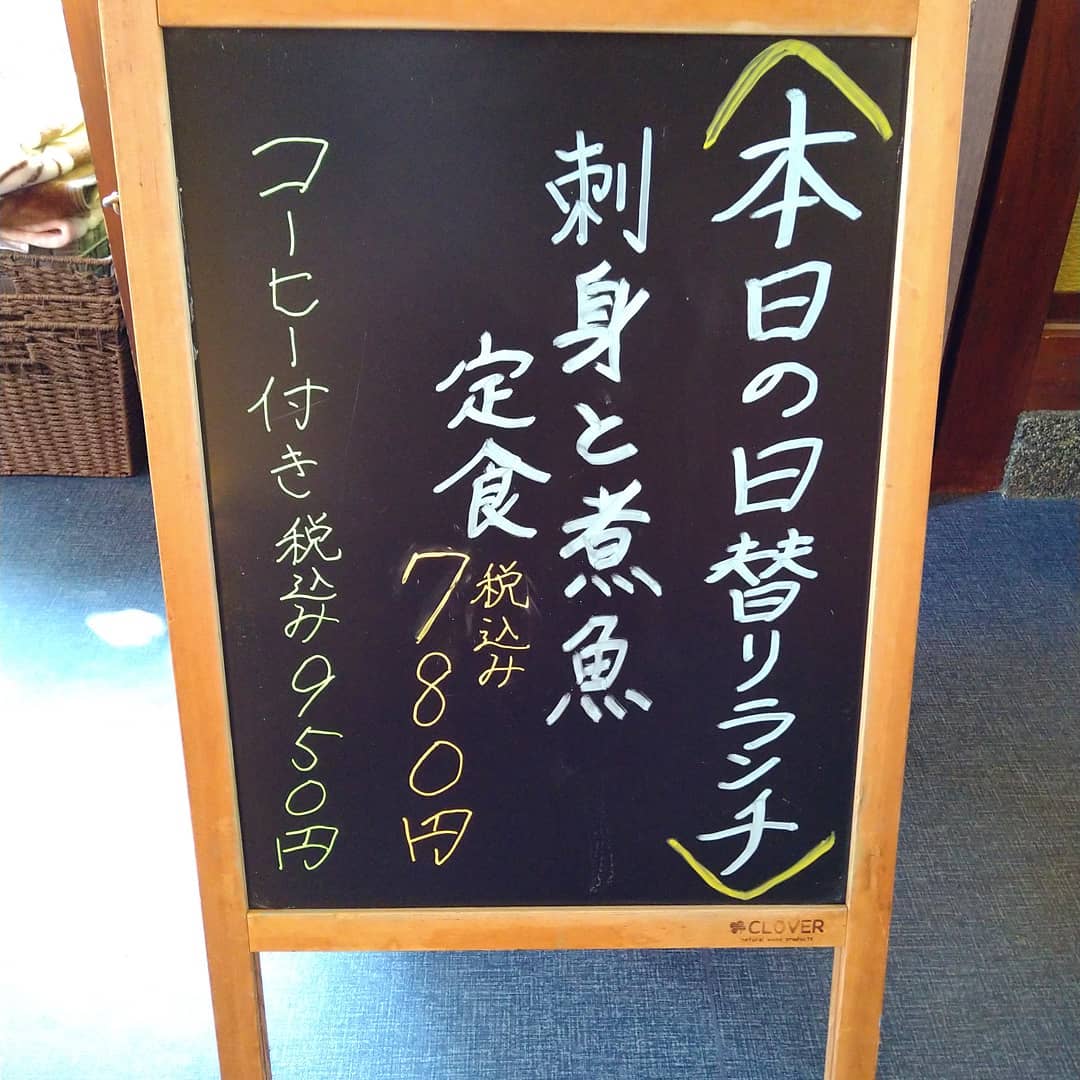 〈本日の日替りランチ〉
刺身と煮魚
定食
税込み
780円
コーヒー付き税込み950円
CLOVER
natural wood products